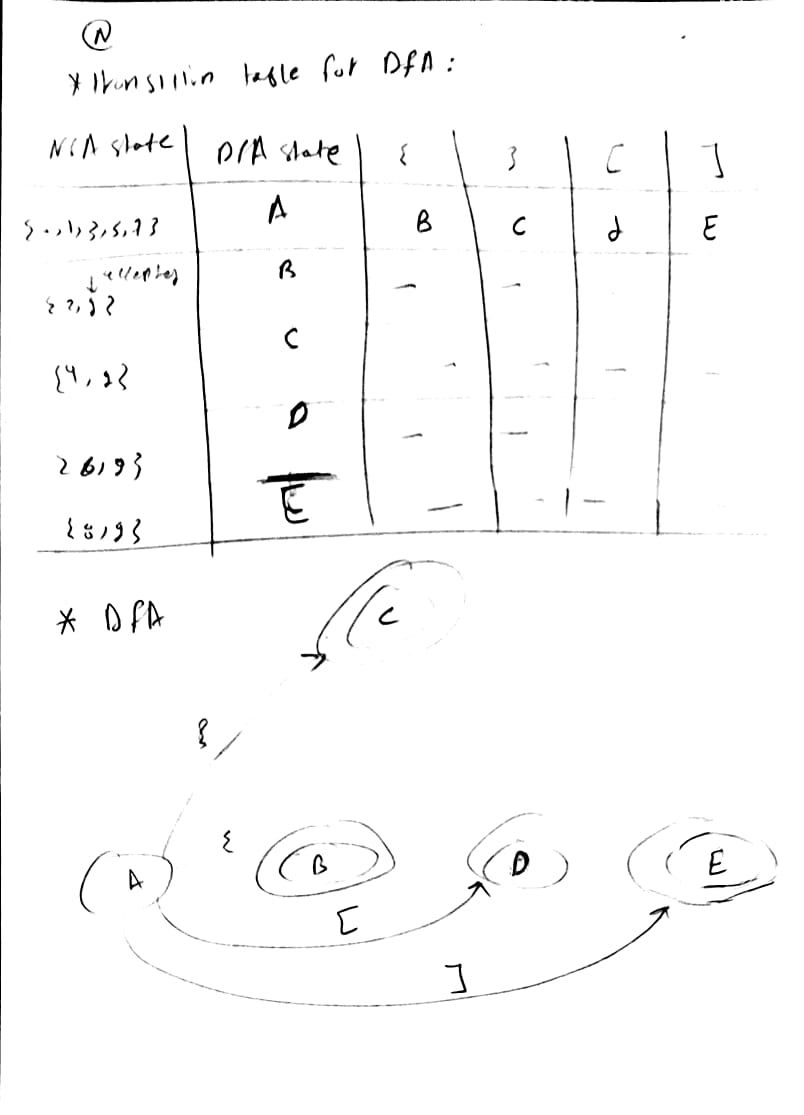 N
* transition table for DFA :
NFA state DFA state { } [ ]
{0,1,3,5,7} A B C d E
↓ accepted B — —
{2,9}
C
{4,9} - - — -
D
— —
{6,9}
E
{8,9} — - —
* DFA
C
}
{
A B D E
[
]